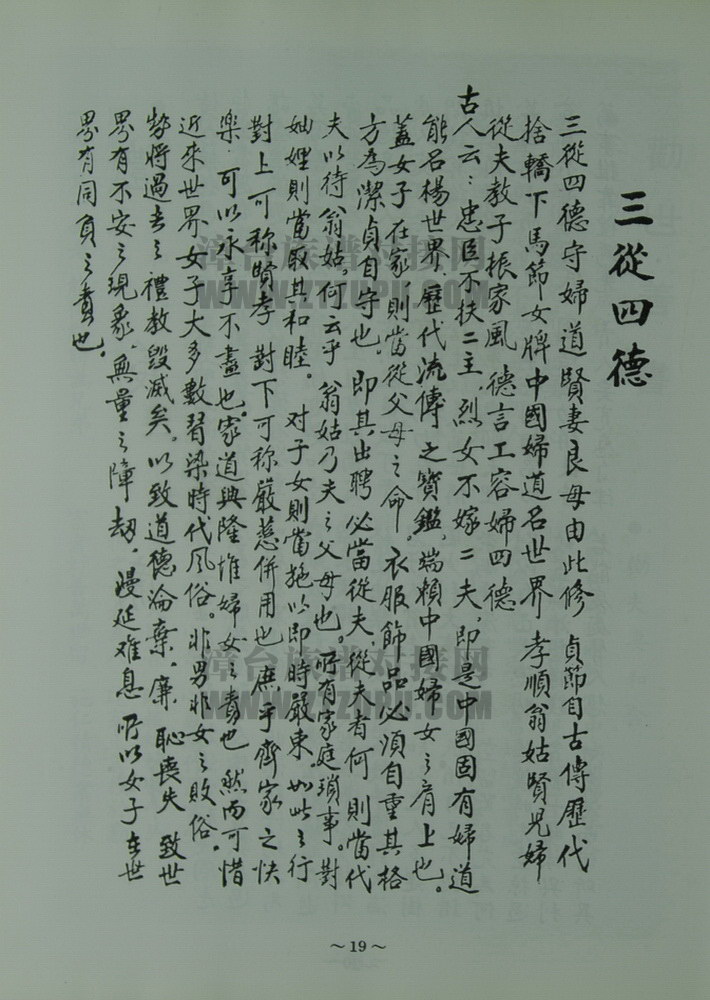 三從四德
三從四德守婦道賢妻良母由此修 貞節自古傳歷代
捨轎下馬節女牌中國婦道名世界 孝順翁姑賢兒婦
從夫教子振家風德言工容婦四德
古人云：忠臣不扶二主，烈女不嫁二夫，即是中國固有婦道
能名楊世界，歷代流傳之寶鑑，端賴中國婦女之肩上也。
蓋女子在家則當從父母之命。衣服飾品必須自重其格
方為潔貞自守也。即其出聘必當從夫，從夫者何 則當代
夫以待翁姑。何云乎 翁姑乃夫之父母也。所有家庭瑣事。對
妯娌則當取其和睦。 对子女則當施以即時嚴束。如此之行
對上可称賢孝 對下可称嚴慈併用也 庶乎齊家之快
樂 可以永享不盡也。家道興隆惟婦女之責也 然而可惜
近來世界女子大多數習染時代風俗。非男非女之敗俗。
勢將過去之禮教毀滅矣。以致道德淪棄。廉恥喪失 致世
界有不安之現象。無量之障劫。漫延难息 所以女子在世
界有同負之責也。
~19~
漳台族谱对接网
WWW.ZTZUPU.COM
漳台族谱对接网
WWW.ZTZUPU.COM